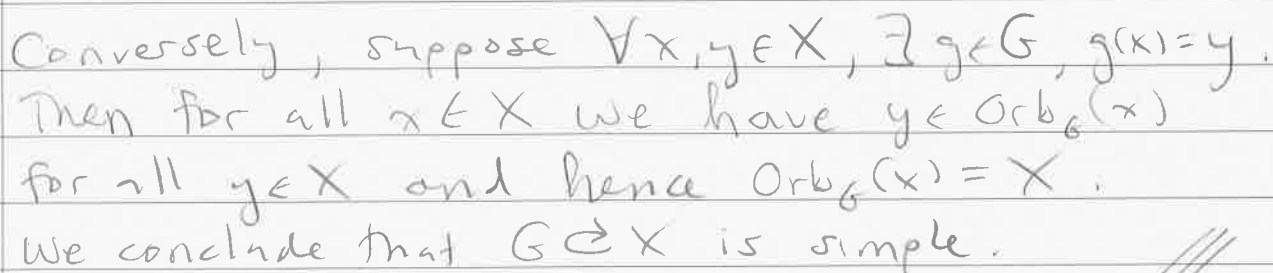 Conversely, suppose ∀x,y∈X, ∃g∈G, g(x)=y.
Then for all x∈X we have y∈Orb_G(x)
for all y∈X and hence Orb_G(x)=X.
We conclude that G⟳X is simple. ///